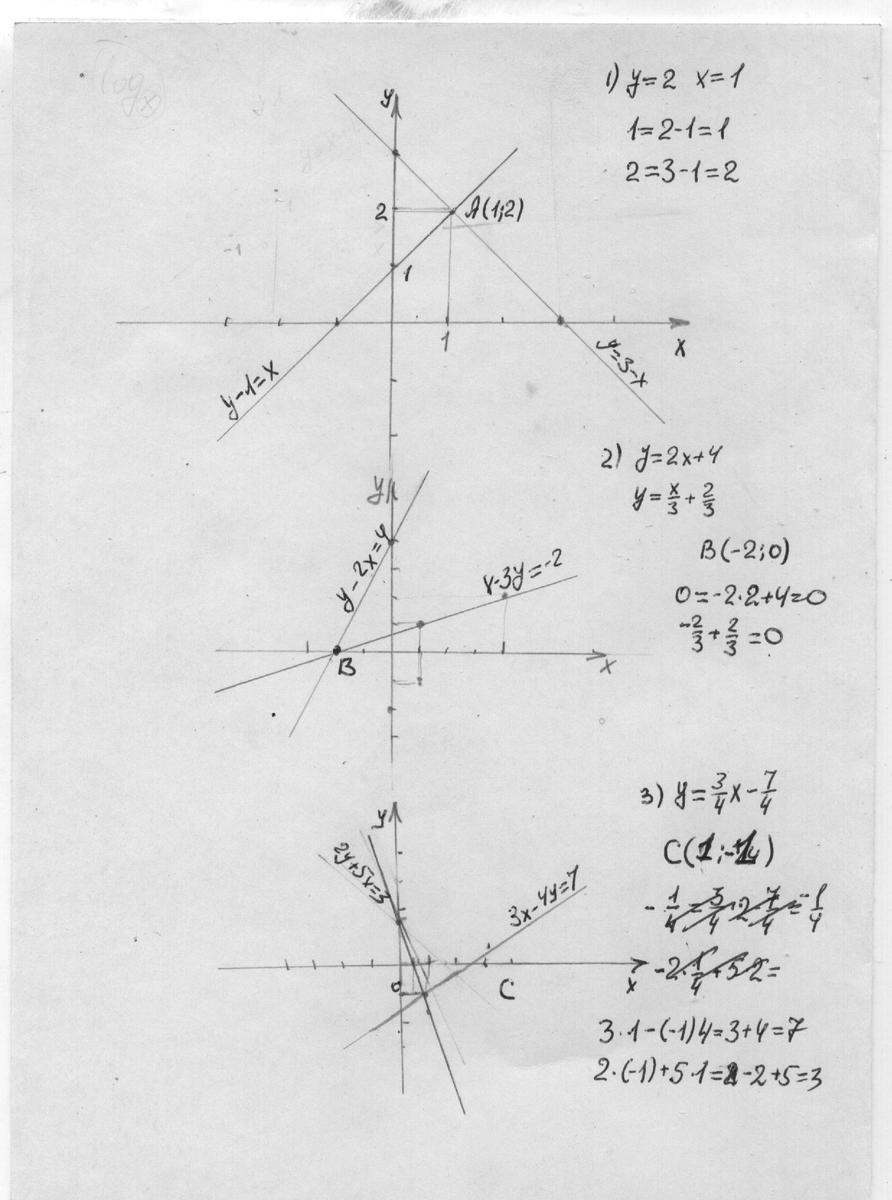 log x
1) y=2 x=1
1=2-1=1
2=3-1=2
y
2
A(1;2)
1
1
x
y-1=x
y=3-x
2) y=2x+4
y=x/3+2/3
B(-2;0)
0=-2·2+4=0
-2/3+2/3=0
y
y-2x=4
x-3y=-2
B
x
3) y=3/4x-7/4
C(1;-1)
3·1-(-1)4=3+4=7
2·(-1)+5·1=-2+5=3
y
2y+5x=3
3x-4y=7
0
C
x